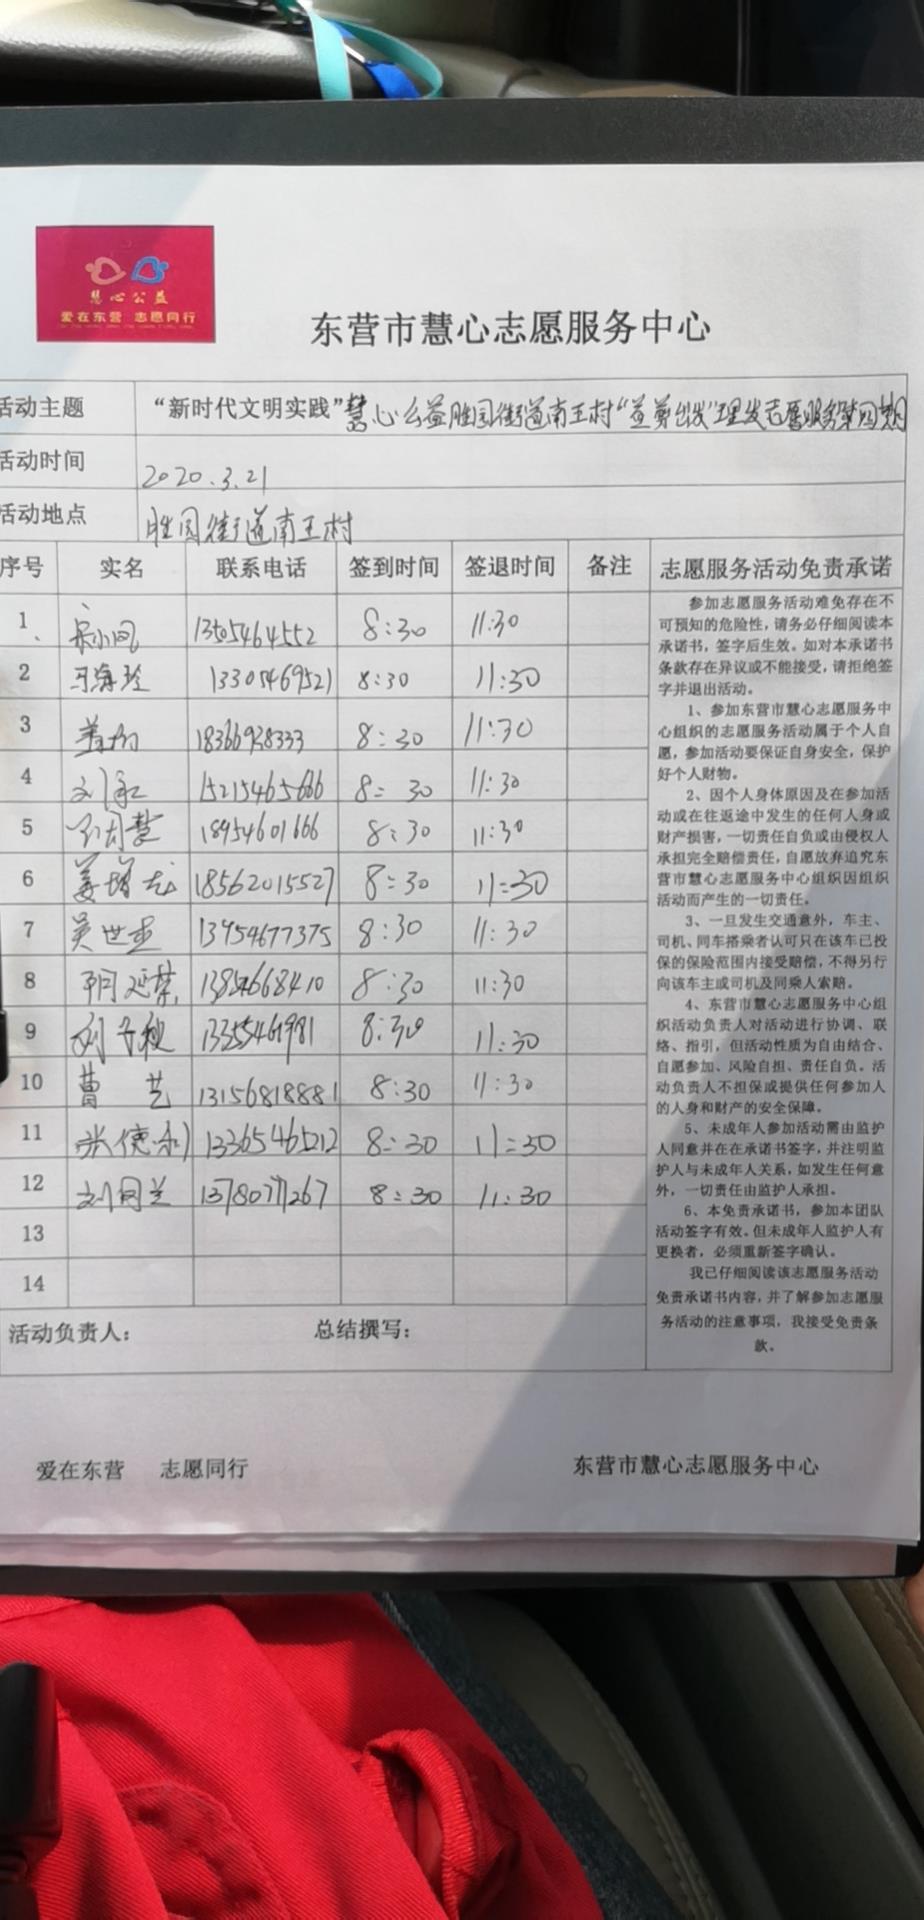 慧心公益
爱在东营 志愿同行
东营市慧心志愿服务中心
活动主题 “新时代文明实践”慧心公益胜园街道南王村“益剪出发”理发志愿服务第四期
活动时间 2020.3.21
活动地点 胜园街道南王村
序号 实名 联系电话 签到时间 签退时间 备注 志愿服务活动免责承诺
1 13505464552 8:30 11:30
2 13305469521 8:30 11:30
3 18366928333 8:30 11:30
4 15215465666 8:30 11:30
5 18954601666 8:30 11:30
6 姜增龙 18562015527 8:30 11:30
7 吴世圭 13954677375 8:30 11:30
8 8:30 11:30
9 刘千秋 13355461981 8:30 11:30
10 曹艺 13156818881 8:30 11:30
11 张德永 13365465212 8:30 11:30
12 刘同兰 8:30 11:30
13
14
参加志愿服务活动难免存在不
可预知的危险性，请务必仔细阅读本
承诺书，签字后生效。如对本承诺书
条款存在异议或不能接受，请拒绝签
字并退出活动。
1、参加东营市慧心志愿服务中
心组织的志愿服务活动属于个人自
愿，参加活动要保证自身安全，保护
好个人财物。
2、因个人身体原因及在参加活
动或在往返途中发生的任何人身或
财产损害，一切责任自负或由侵权人
承担完全赔偿责任，自愿放弃追究东
营市慧心志愿服务中心组织因组织
活动而产生的一切责任。
3、一旦发生交通意外，车主、
司机、同车搭乘者认可只在该车已投
保的保险范围内接受赔偿，不得另行
向该车主或司机及同乘人索赔。
4、东营市慧心志愿服务中心组
织活动负责人对活动进行协调、联
络、指引，但活动性质为自由结合、
自愿参加、风险自担、责任自负。活
动负责人不担保或提供任何参加人
的人身和财产的安全保障。
5、未成年人参加活动需由监护
人同意并在在承诺书签字，并注明监
护人与未成年人关系，如发生任何意
外，一切责任由监护人承担。
6、本免责承诺书，参加本团队
活动签字有效。但未成年人监护人有
更换者，必须重新签字确认。
我已仔细阅读该志愿服务活动
免责承诺书内容，并了解参加志愿服
务活动的注意事项，我接受免责条
款。
活动负责人： 总结撰写：
爱在东营 志愿同行 东营市慧心志愿服务中心